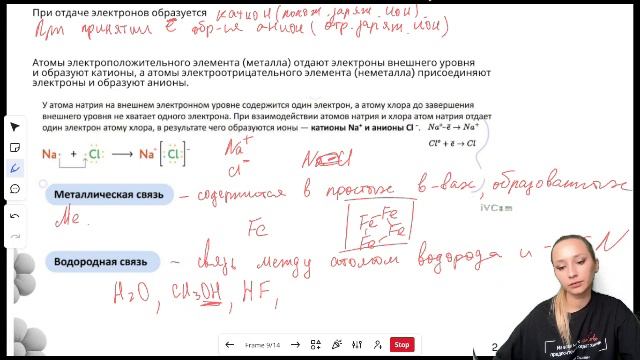 При отдаче электронов образуется катион (полож. заряж. ион).
При принятии ē обр-ся анион (отр. заряж. ион)
Атомы электроположительного элемента (металла) отдают электроны внешнего уровня
и образуют катионы, а атомы электроотрицательного элемента (неметалла) присоединяют
электроны и образуют анионы.
У атома натрия на внешнем электронном уровне содержится один электрон, а атому хлора до завершения
внешнего уровня не хватает одного электрона. При взаимодействии атомов натрия и хлора атом натрия отдает
один электрон атому хлора, в результате чего образуются ионы — катионы Na⁺ и анионы Cl⁻.
Na⁰-ē → Na⁺
Cl⁰ + ē → Cl⁻
Na· + ·Cl: → Na⁺[:Cl:]⁻
Na⁺
Cl⁻
NaCl
Металлическая связь – содержится в простых в-вах, образованных
Me.
Fe
Fe Fe
Fe Fe
iVCam
Водородная связь – связь между атомом водорода и
N
H₂O, CH₃OH, HF,
Frame 9/14
Stop
2